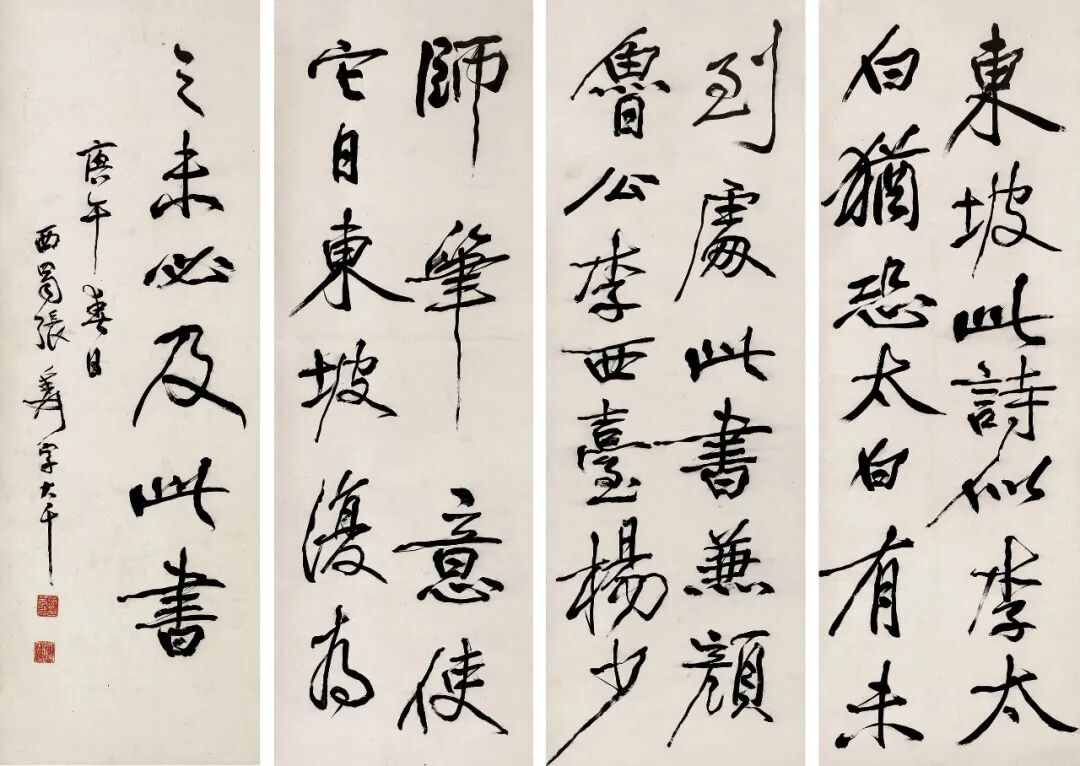 東坡此詩似李太
白猶恐太白有未
到處此書兼顏
魯公李西臺楊少
師筆意使
它日東坡復為
之未必及此書
庚午春日
西蜀張爰字大千